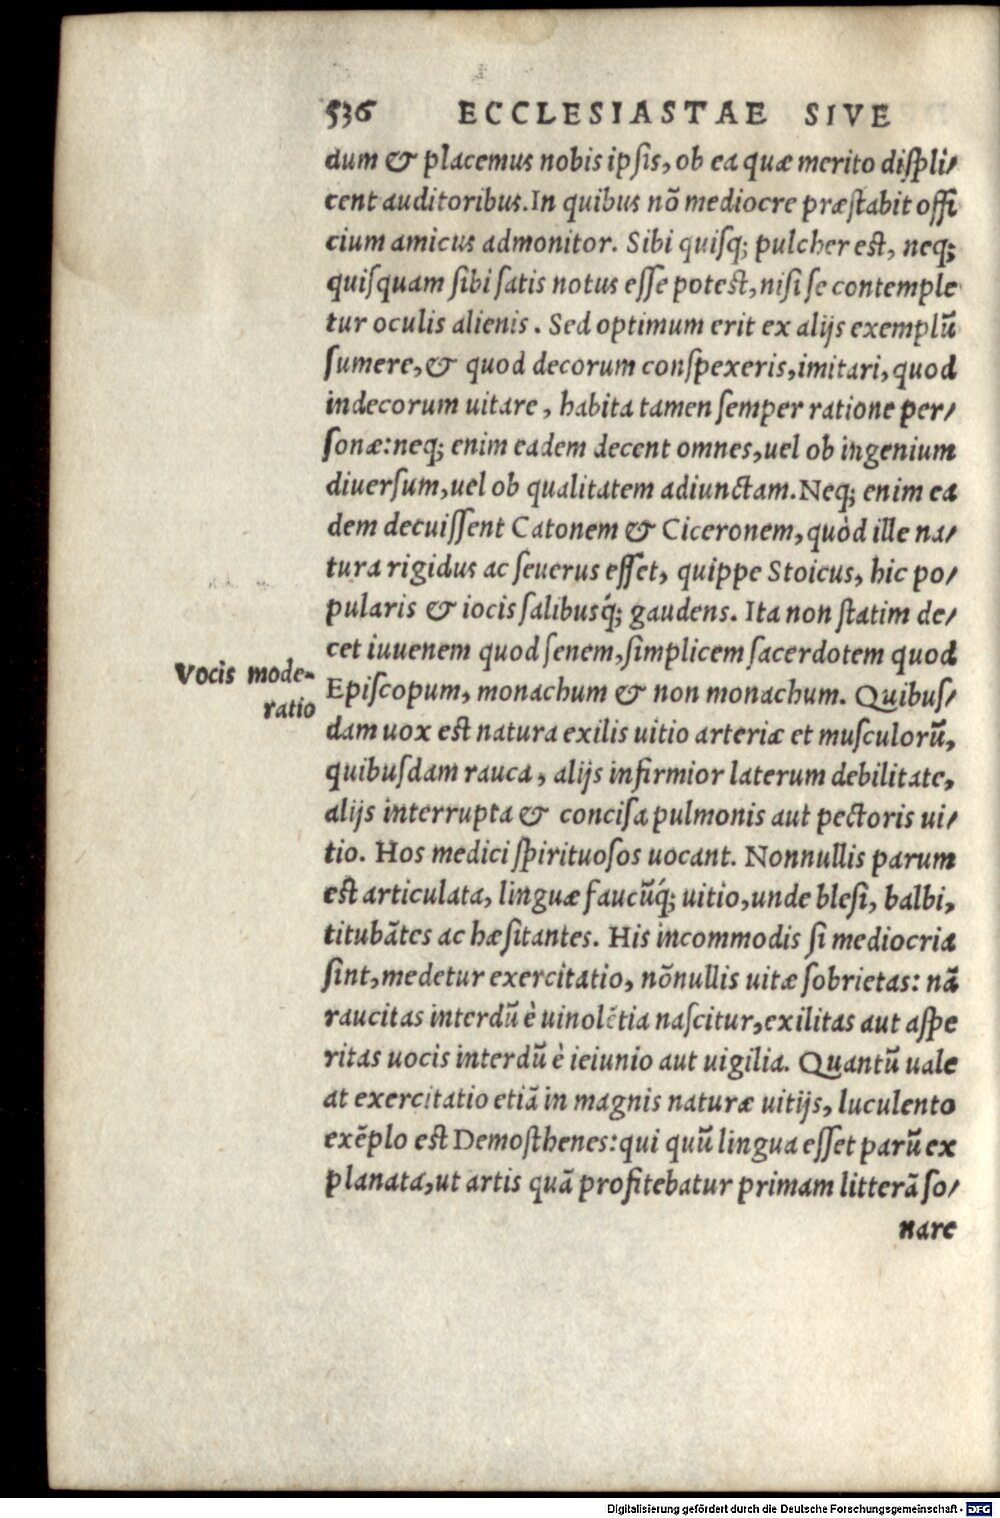 536 ECCLESIASTAE SIVE
dum & placemus nobis ipſis, ob ea quæ merito diſpli/
cent auditoribus. In quibus nõ mediocre præſtabit offi
cium amicus admonitor. Sibi quiſq; pulcher eſt, neq;
quiſquam ſibi ſatis notus eſſe poteſt, niſi ſe contemple
tur oculis alienis. Sed optimum erit ex alijs exemplũ
ſumere, & quod decorum conſpexeris, imitari, quod
indecorum uitare, habita tamen ſemper ratione per/
ſonæ: neq; enim eadem decent omnes, uel ob ingenium
diuerſum, uel ob qualitatem adiunctam. Neq; enim ea
dem decuiſſent Catonem & Ciceronem, quòd ille na/
tura rigidus ac ſeuerus eſſet, quippe Stoicus, hic po/
pularis & iocis ſalibusq́; gaudens. Ita non ſtatim de/
cet iuuenem quod ſenem, ſimplicem ſacerdotem quod
Vocis mode-
ratio
Epiſcopum, monachum & non monachum. Quibuſ/
dam uox eſt natura exilis uitio arteriæ et muſculorũ,
quibuſdam rauca, alijs infirmior laterum debilitate,
alijs interrupta & conciſa pulmonis aut pectoris ui/
tio. Hos medici ſpirituoſos uocant. Nonnullis parum
eſt articulata, linguæ faucũq́; uitio, unde bleſi, balbi,
titubãtes ac hæſitantes. His incommodis ſi mediocria
ſint, medetur exercitatio, nõnullis uitæ ſobrietas: nã
raucitas interdũ è uinolẽtia naſcitur, exilitas aut aſpe
ritas uocis interdũ è ieiunio aut uigilia. Quantũ uale
at exercitatio etiã in magnis naturæ uitijs, luculento
exẽplo eſt Demoſthenes: qui quũ lingua eſſet parũ ex
planata, ut artis quã profitebatur primam litterã ſo/
nare
Digitalisierung gefördert durch die Deutsche Forschungsgemeinschaft - DFG